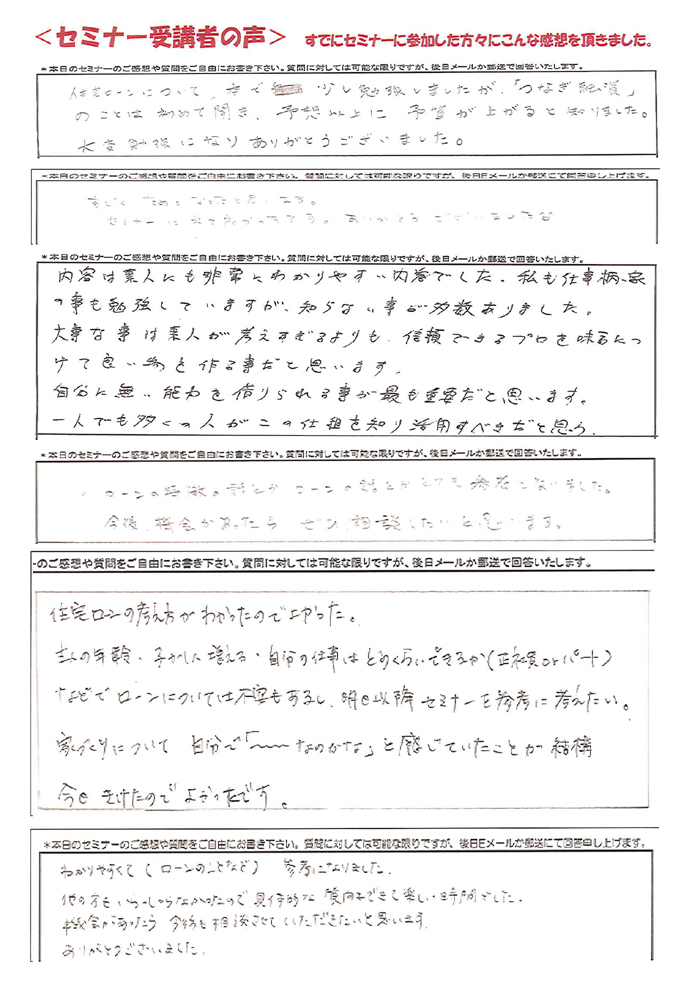 ＜セミナー受講者の声＞ すでにセミナーに参加した方々にこんな感想を頂きました。
＊本日のセミナーのご感想や質問をご自由にお書き下さい。質問に対しては可能な限りですが、後日メールか郵送で回答いたします。
住宅ローンについて、本で 少し勉強しましたが、「つなぎ融資」
のことは初めて聞き、予想以上に 予算が上がると知りました。
大変勉強になりありがとうございました。
＊本日のセミナーのご感想や質問をご自由にお書き下さい。 質問に対しては可能な限りですが、後日Eメールか郵送にて回答申し上げます。
すごく ためになったと思います。
セミナーに来て良かったです。ありがとうございました
＊本日のセミナーのご感想や質問をご自由にお書き下さい。質問に対しては可能な限りですが、後日メールか郵送で回答いたします。
内容は素人にも非常にわかりやすい内容でした。私も仕事柄、家
の事も勉強していますが、知らない事が多数ありました。
大事な事は素人が考えすぎるよりも、信頼できるプロを味方につ
けて良い物を作る事だと思います。
自分に無い能力を借りられる事が最も重要だと思います。
一人でも多くの人がこの仕組を知り活用すべきだと思う。
＊本日のセミナーのご感想や質問をご自由にお書き下さい。質問に対しては可能な限りですが、後日メールか郵送で回答いたします。
ローンの 話とか ローンの話とかとても 参考になりました。
今後、機会があったら ぜひ、相談したいと思います。
のご感想や質問をご自由にお書き下さい。質問に対しては可能な限りですが、後日メールか郵送で回答いたします。
住宅ローンの考え方がわかったのでよかった。
主人の年齢・子供が増える・自分の仕事はどのくらいできるか（正社員orパート）
などでローンについては不安もあるし、明日以降セミナーを参考に考えたい。
家づくりについて 自分で「〜〜なのかな」と感じていたことが 結構
今日 きけたので よかったです。
＊本日のセミナーのご感想や質問をご自由にお書き下さい。質問に対しては可能な限りですが、後日Eメールか郵送にて回答申し上げます。
わかりやすくて（ローンのことなど） 参考になりました。
他の方もいらっしゃらなかったので 具体的な 質問もできて楽しい時間でした。
機会があったら 今後も相談させていただきたいと思います。
ありがとうございました。